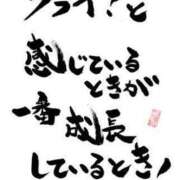 ツライ!と
感じている
ときが
一番成長
しているとき!